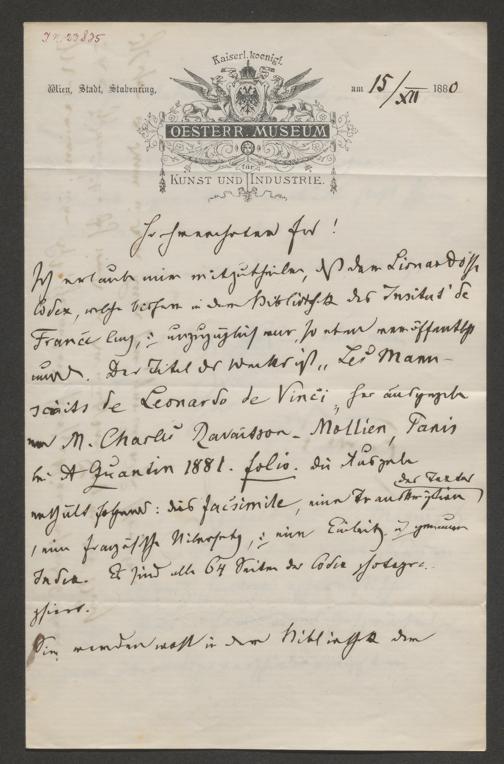 I.N. 23835
Kaiserl. koenigl.
Wien, Stadt, Stubenring,
am 15/XII 1880
OESTERR. MUSEUM
für
KUNST UND INDUSTRIE.
Hochverehrter Herr!
Ich erlaube mir mitzutheilen, daß der Lionardo'sche
Codex, welcher bisher in der Bibliothek des Institut de
France lag, unzugänglich war, so eben veröffentlicht
wird. Der Titel des Werkes ist „Les Manu-
scrits de Leonardo de Vinci", herausgegeben
von M. Charles Ravaisson-Mollien, Paris
bei A Quantin 1881. folio. die Ausgabe
enthält folgend: das facsimile, eine Transkription
des Textes
, eine französische Uebersetzg, eine Einleitg u genauen
Index. Es sind alle 64 Seiten des Codex photogra-
phiert.
Sie werden wohl in der Bibliothek den